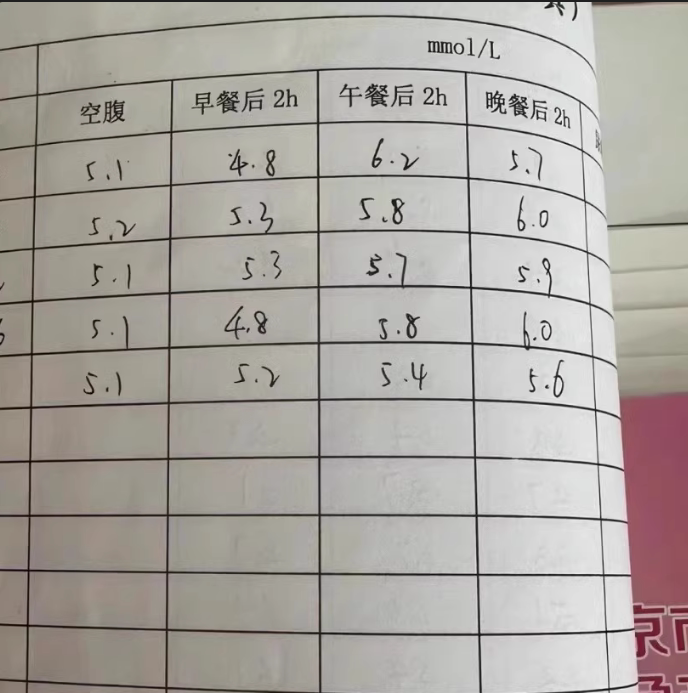 mmol/L
空腹 早餐后2h 午餐后2h 晚餐后2h
5.1 4.8 6.2 5.7
5.2 5.3 5.8 6.0
5.1 5.3 5.7 5.9
5.1 4.8 5.8 6.0
5.1 5.2 5.4 5.6
京市